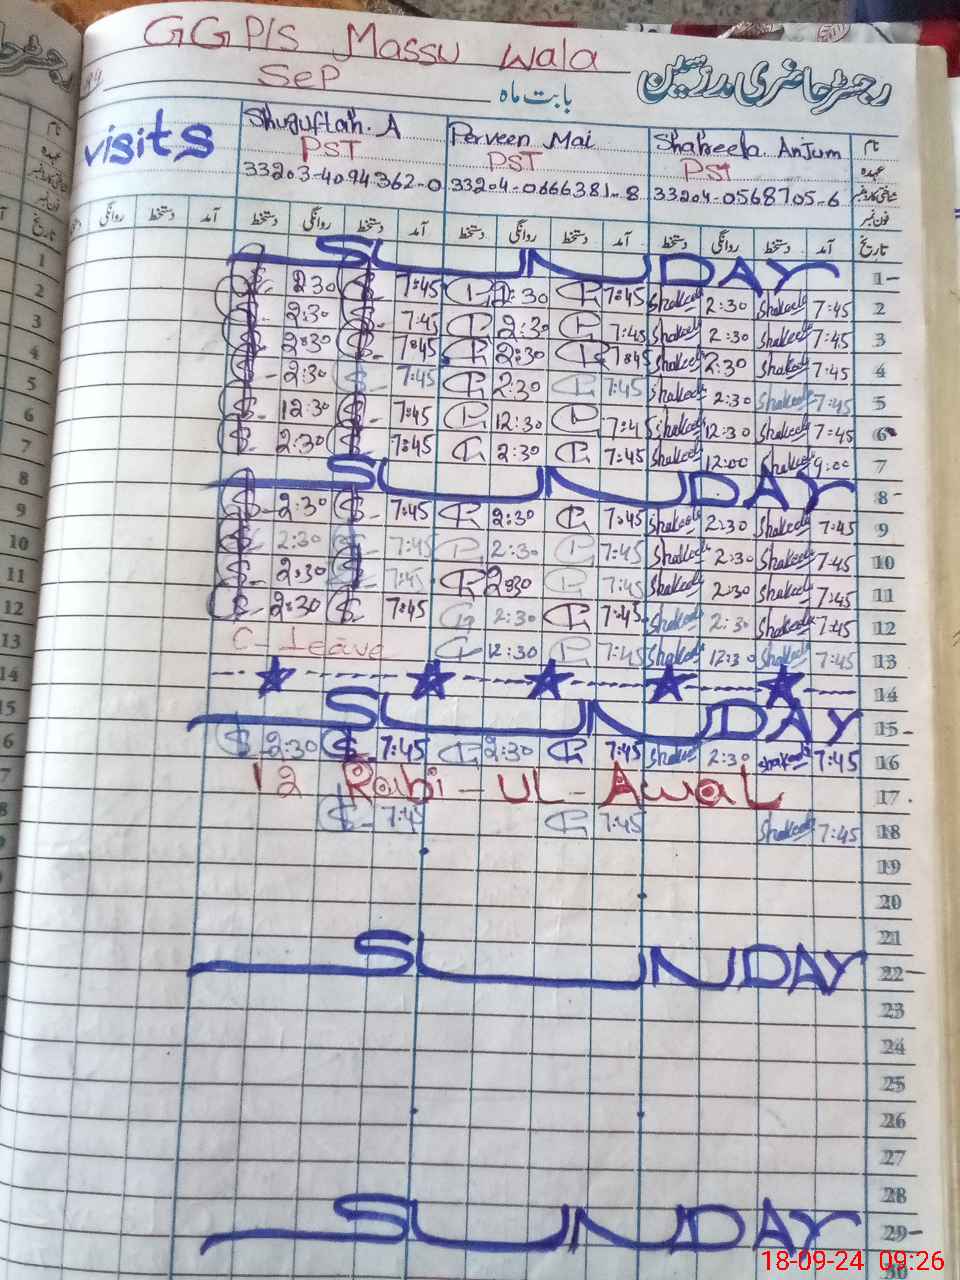 GGP/S Massu Wala
Sep
بابت ماہ
رجسٹر حاضری مدرسین
visits
Shuguftah. A
Perveen Mai
Shakeela Anjum
نام
PST
PST
PST
عہدہ
33203-4094362-0
33204-0666381-8
33204-0568705-6
شناختی کارڈ نمبر
فون نمبر
دستخط آمد دستخط روانگی دستخط آمد دستخط روانگی دستخط آمد دستخط روانگی دستخط آمد تاریخ
1 SUNDAY 1
2 2:30 7:45 2:30 7:45 Shakeela 2:30 Shakeela 7:45 2
3 2:30 7:45 2:30 7:45 Shakeela 2:30 Shakeela 7:45 3
4 2:30 7:45 2:30 7:45 Shakeela 2:30 Shakeela 7:45 4
5 2:30 7:45 2:30 7:45 Shakeela 2:30 Shakeela 7:45 5
6 12:30 7:45 12:30 7:4 Shakeela 12:30 Shakeela 7:45 6
7 2:30 7:45 2:30 7:45 Shakeela 12:00 Shakeela 9:00 7
8 SUNDAY 8
9 2:30 7:45 2:30 7:45 Shakeela 2:30 Shakeela 7:45 9
10 2:30 7:45 2:30 7:45 Shakeela 2:30 Shakeela 7:45 10
11 2:30 7:45 2:30 7:45 Shakeela 2:30 Shakeela 7:45 11
12 2:30 7:45 2:30 7:45 Shakeela 2:30 Shakeela 7:45 12
13 C-leave 12:30 7:45 Shakeela 12:30 Shakeela 7:45 13
14 14
15 SUNDAY 15
16 2:30 7:45 2:30 7:45 Shakeela 2:30 Shakeela 7:45 16
12 Rabi-ul-Awal 17
7:45 7:45 Shakeela 7:45 18
19
20
21
SUNDAY 22
23
24
25
26
27
28
SUNDAY 29
30
18-09-24 09:26